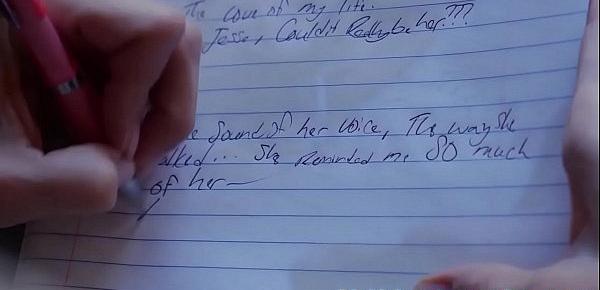 The love of my life.
Jesse, Could it Really be her???
e Sound of her voice, The way She
alked... She Reminded me SO much
of her—